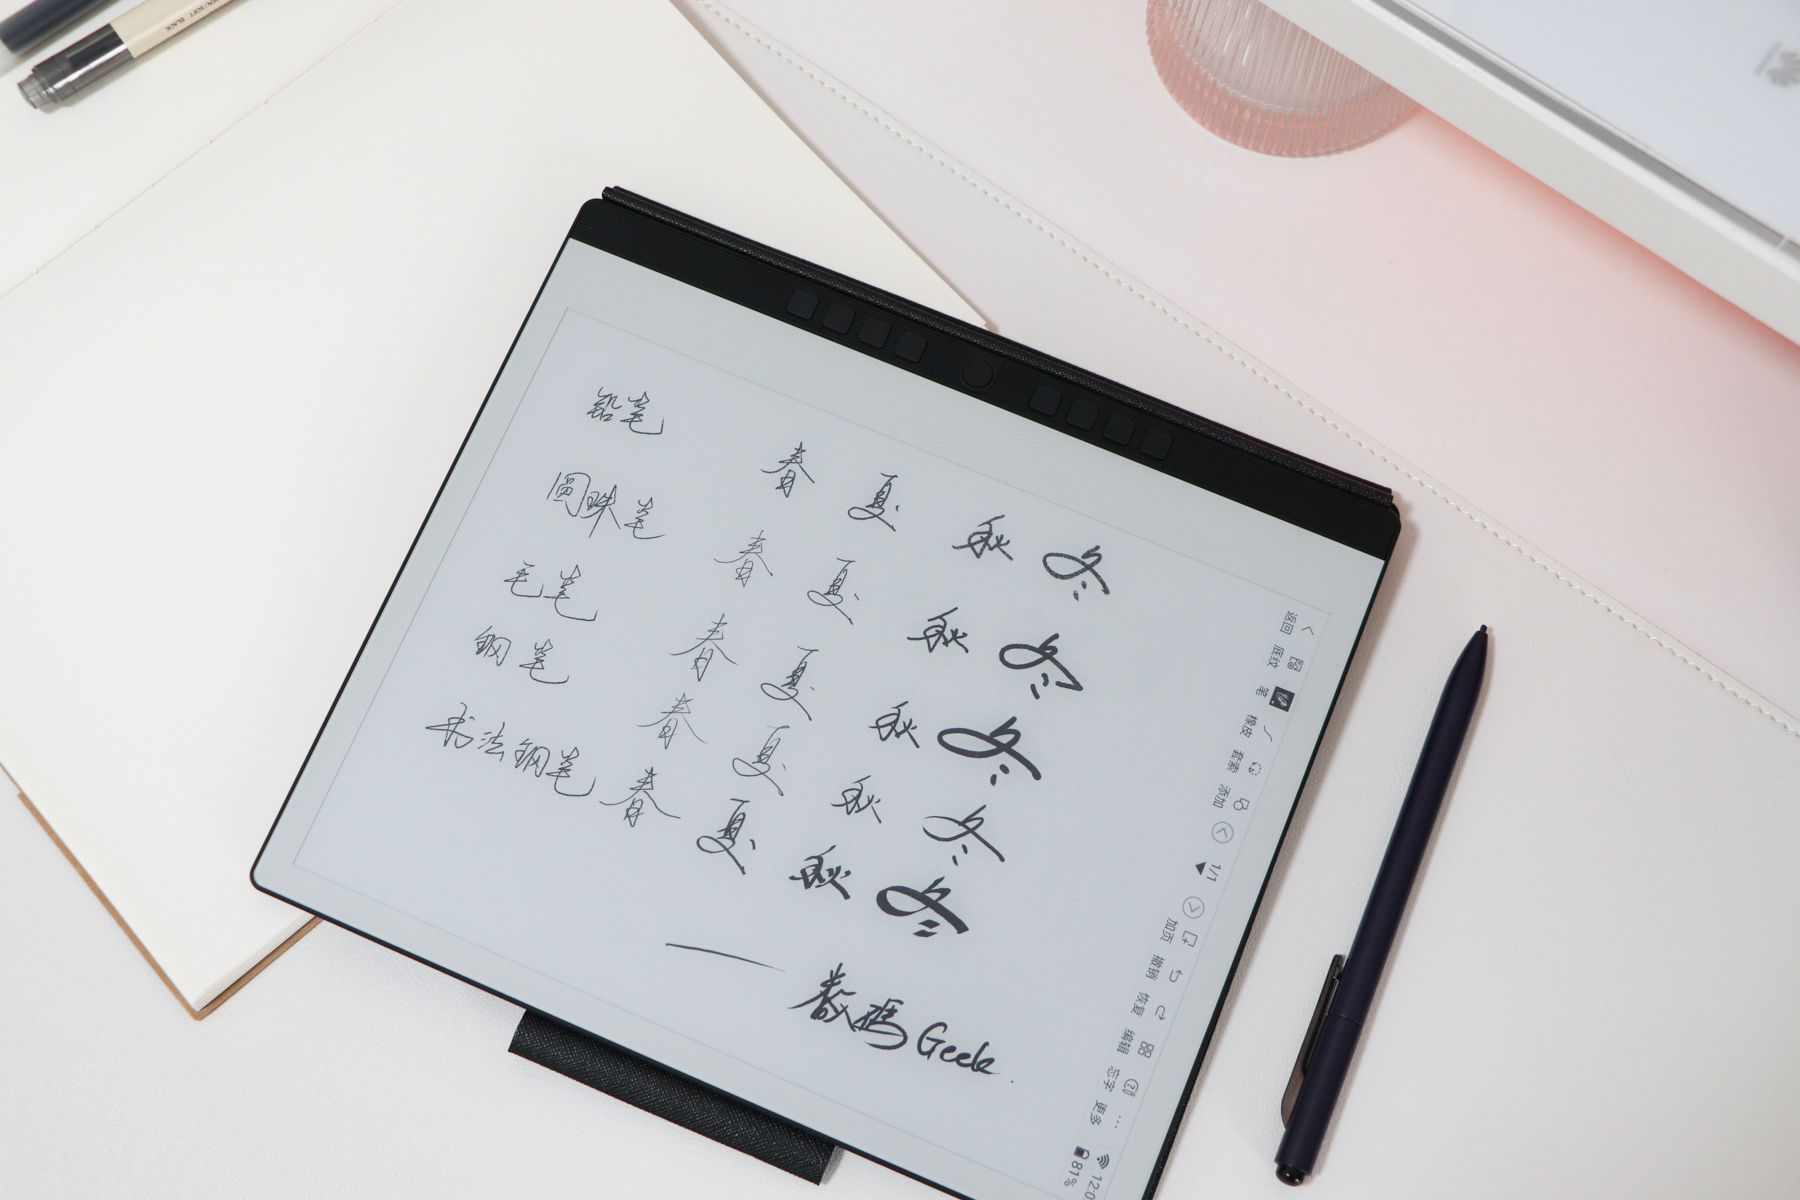 铅笔 春 夏 秋 冬
圆珠笔 春 夏 秋 冬
毛笔 春 夏 秋 冬
钢笔 春 夏 秋 冬
书法钢笔 春 夏 秋 冬
一 数码 Geek.
返回 底纹 笔 橡皮 套索 添加 1/1 加页 撤销 恢复 编辑 忘字 更多
81% 12:0
BLACK